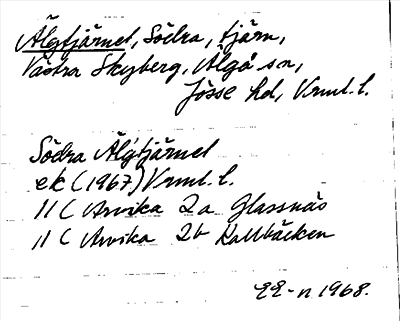 Älgtjärnet, Södra, tjärn,
Västra Skyberg, Älgå sn,
Jösse hd, Vrml. l.
Södra Älgtjärnet
ek (1967) Vrml. l.
11 C Arvika 2a Glassnäs
11 C Arvika 2b Kallbäcken
n 1968.